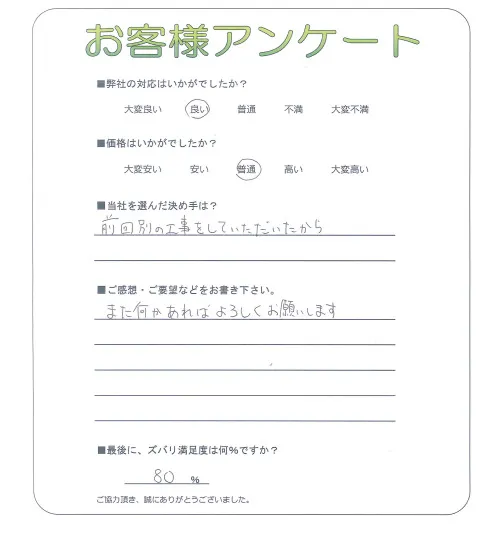 お客様アンケート
■弊社の対応はいかがでしたか？
大変良い 良い 普通 不満 大変不満
■価格はいかがでしたか？
大変安い 安い 普通 高い 大変高い
■当社を選んだ決め手は？
前回別の工事をしていただいたから
■ご感想・ご要望などをお書き下さい。
また何かあればよろしくお願いします
■最後に、ズバリ満足度は何%ですか？
80 %
ご協力頂き、誠にありがとうございました。